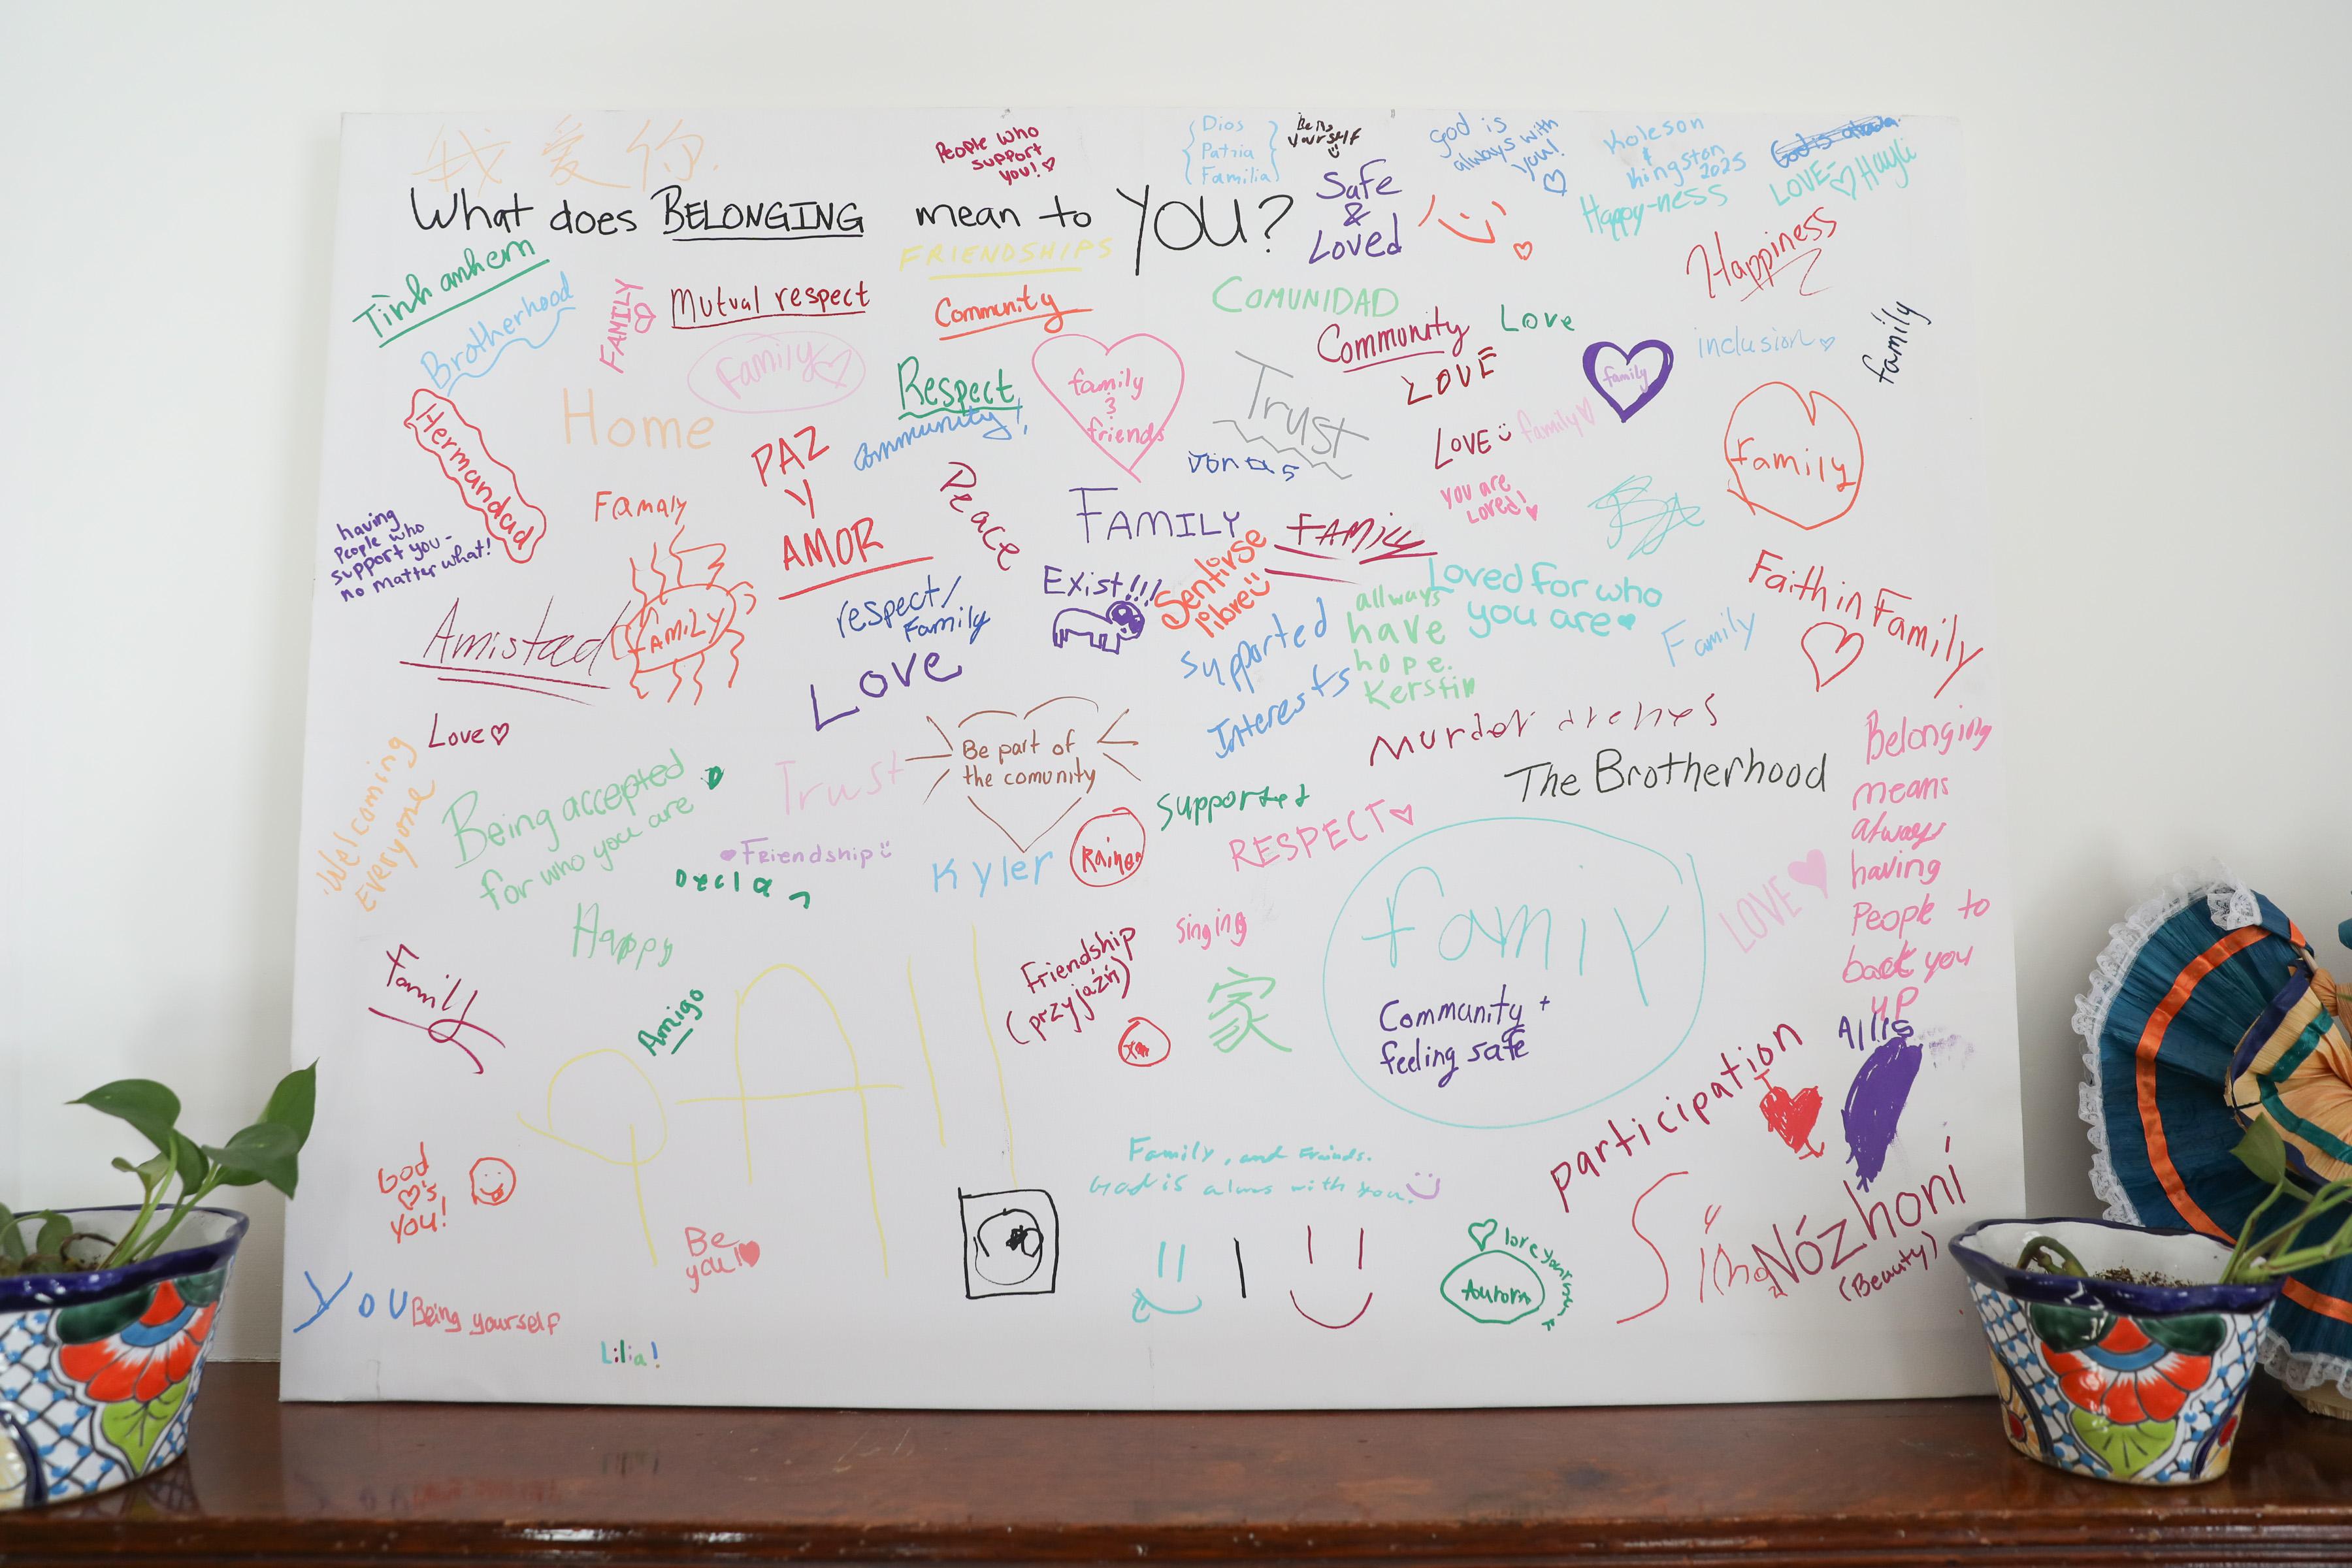 我爱你
What does BELONGING mean to YOU?
People who
support
you!
Dios
Patria
Familia
Being
Yourself
Safe
&
Loved
God is
always with
you!
Koleson
&
Kingston
2025
Happy-ness
LOVE-
Hayli
FRIENDSHIPS
Happiness
Tinh anhem
Brotherhood
FAMILY
Mutual respect
Community
COMUNIDAD
Community
Love
LOVE
family
inclusion
family
Family
Home
Respect
community!
family
&
friends
Trust
LOVE
family
family
Hermandad
PAZ
Y
AMOR
Peace
you are
Loved!
having
People who
support you-
no matter what!
Famaly
FAMILY
FAMILY
FAMILY
Exist!!!
Sentirse
libre
Loved for who
you are
Faith in Family
respect/
Family
Amistad
Supported
Interests
allways
have
hope.
Kerstin
Family
LOVE
Love
Be part of
the comunity
The Brotherhood
Belonging
means
always
having
People to
back you
up
Welcoming
Everyone
Being accepted
for who you are
Trust
Supported
RESPECT
Friendship
Kyler
Happy
famiy
LOVE
Community +
feeling safe
singing
Friendship
(przyjaźń)
家
Amigo
participation
God
's
you!
Family, and Friends.
Be
you!
Aurora
Nózhoní
(Beauty)
You
Being yourself
Lilia!